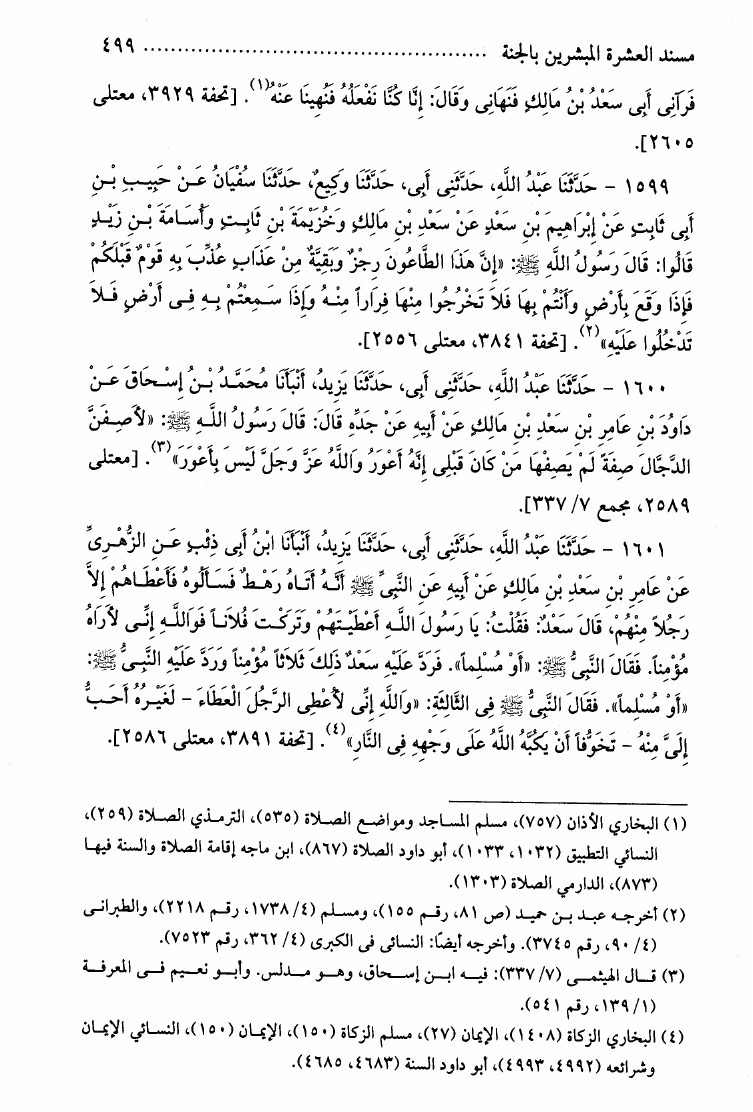 مسند العشرة المبشرين بالجنة ................................................ ٤٩٩
فَرَآنِى أَبِى سَعْدُ بْنُ مَالِكٍ فَنَهَانِى وَقَالَ: إِنَّا كُنَّا نَفْعَلُهُ فَنُهِينَا عَنْهُ(١). [تحفة ٣٩٢٩، معتلى
٢٦٠٥].
١٥٩٩ - حَدَّثَنَا عَبْدُ اللَّهِ، حَدَّثَنِى أَبِى، حَدَّثَنَا وَكِيعٌ، حَدَّثَنَا سُفْيَانُ عَـنْ حَبِيـبِ بْـنِ
أَبِى ثَابِتٍ عَنْ إِبْرَاهِيمَ بْنِ سَعْدٍ عَنْ سَعْدِ بْنِ مَالِكٍ وَخُزَيْمَةَ بْنِ ثَابِتٍ وَأُسَامَةَ بْـنِ زَيْـدٍ
قَالُوا: قَالَ رَسُولُ اللَّهِ ﷺ: «إِنَّ هَذَا الطَّاعُونَ رِجْزٌ وَبَقِيَّةٌ مِنْ عَذَابٍ عُذِّبَ بِهِ قَوْمٌ قَبْلَكُمْ
فَإِذَا وَقَعَ بِأَرْضٍ وَأَنْتُمْ بِهَا فَلاَ تَخْرُجُوا مِنْهَا فِرَاراً مِنْـهُ وَإِذَا سَـمِعْتُمْ بِـهِ فِـى أَرْضٍ فَـلاَ
تَدْخُلُوا عَلَيْهِ»(٢). [تحفة ٣٨٤١، معتلى ٢٥٥٦].
١٦٠٠ - حَدَّثَنَا عَبْدُ اللَّهِ، حَدَّثَنِى أَبِى، حَدَّثَنَا يَزِيدُ، أَنْبَأَنَا مُحَمَّـدُ بْـنُ إِسْـحَاقَ عَـنْ
دَاوُدَ بْنِ عَامِرِ بْنِ سَعْدِ بْنِ مَالِكٍ عَنْ أَبِيهِ عَنْ جَدِّهِ قَالَ: قَالَ رَسُولُ اللَّـهِ ﷺ: «لأَصِـفَنَّ
الدَّجَّالَ صِفَةً لَمْ يَصِفْهَا مَنْ كَانَ قَبْلِى إِنَّهُ أَعْوَرُ وَاللَّهُ عَزَّ وَجَلَّ لَيْسَ بِأَعْوَرَ»(٣). [معتلى
٢٥٨٩، مجمع ٧/ ٣٣٧].
١٦٠١ - حَدَّثَنَا عَبْدُ اللَّهِ، حَدَّثَنِى أَبِى، حَدَّثَنَا يَزِيدُ، أَنْبَأَنَا ابْنُ أَبِى ذِئْبٍ عَـنِ الزُّهْـرِىِّ
عَنْ عَامِرِ بْنِ سَعْدِ بْنِ مَالِكٍ عَنْ أَبِيهِ عَنِ النَّبِىِّ ﷺ أَنَّـهُ أَتَـاهُ رَهْـطٌ فَسَـأَلُوهُ فَأَعْطَاهُمْ إِلاَّ
رَجُلاً مِنْهُمْ، قَالَ سَعْدٌ: فَقُلْتُ: يَا رَسُولَ اللَّـهِ أَعْطَيْـتَهُمْ وَتَرَكْـتَ فُلاَنـاً فَوَاللَّـهِ إِنِّـى لأَرَاهُ
مُؤْمِناً. فَقَالَ النَّبِىُّ ﷺ: «أَوْ مُسْلِماً». فَرَدَّ عَلَيْهِ سَعْدٌ ذَلِكَ ثَلاَثاً مُؤْمِناً وَرَدَّ عَلَيْهِ النَّبِـىُّ ﷺ:
«أَوْ مُسْلِماً». فَقَالَ النَّبِىُّ ﷺ فِى الثَّالِثَةِ: «وَاللَّهِ إِنِّى لأُعْطِى الرَّجُلَ الْعَطَاءَ - لَغَيْـرُهُ أَحَـبُّ
إِلَىَّ مِنْهُ - تَخَوُّفاً أَنْ يَكُبَّهُ اللَّهُ عَلَى وَجْهِهِ فِى النَّارِ»(٤). [تحفة ٣٨٩١، معتلى ٢٥٨٦].
(١) البخاري الأذان (٧٥٧)، مسلم المساجد ومواضع الصلاة (٥٣٥)، الترمذي الصلاة (٢٥٩)،
النسائي التطبيق (١٠٣٢، ١٠٣٣)، أبو داود الصلاة (٨٦٧)، ابن ماجه إقامة الصلاة والسنة فيها
(٨٧٣)، الدارمي الصلاة (١٣٠٣).
(٢) أخرجه عبد بـن حميد (ص ٨١، رقم ١٥٥)، ومسلم (٤/ ١٧٣٨، رقم ٢٢١٨)، والطبرانى
(٤/ ٩٠، رقم ٣٧٤٥). وأخرجه أيضًا: النسائى فى الكبرى (٤/ ٣٦٢، رقم ٧٥٢٣).
(٣) قـال الهيثمـى (٧/ ٣٣٧): فيـه ابـن إسـحاق، وهـو مـدلس. وأبـو نعـيم فـى المعرفـة
(١/ ١٣٩، رقم ٥٤١).
(٤) البخاري الزكاة (١٤٠٨)، الإيمان (٢٧)، مسلم الزكاة (١٥٠)، الإيمان (١٥٠)، النسائي الإيمان
وشرائعه (٤٩٩٢، ٤٩٩٣)، أبو داود السنة (٤٦٨٣، ٤٦٨٥).